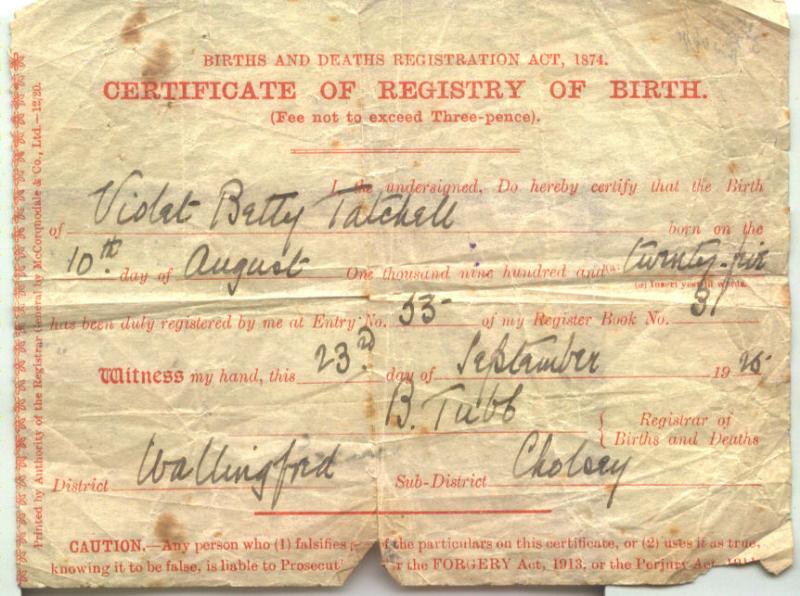 BIRTHS AND DEATHS REGISTRATION ACT, 1874.
CERTIFICATE OF REGISTRY OF BIRTH.
(Fee not to exceed Three-pence).
I the undersigned, Do hereby certify that the Birth
of Violet Betty Tatchell born on the
10th. day of August One thousand nine hundred and (a) twenty-five
(a) Insert year in words.
has been duly registered by me at Entry No. 53 of my Register Book No. 31
Witness my hand, this 23rd. day of September 1925
B. Tubb { Registrar of Births and Deaths
District Wallingford Sub-District Cholsey
CAUTION.—Any person who (1) falsifies f the particulars on this certificate, or (2) uses it as true,
knowing it to be false, is liable to Prosecut r the FORGERY Act, 1913, or the Perjury Act, 1911
Printed by Authority of the Registrar General by McCorquodale & Co., Ltd.—12/20.